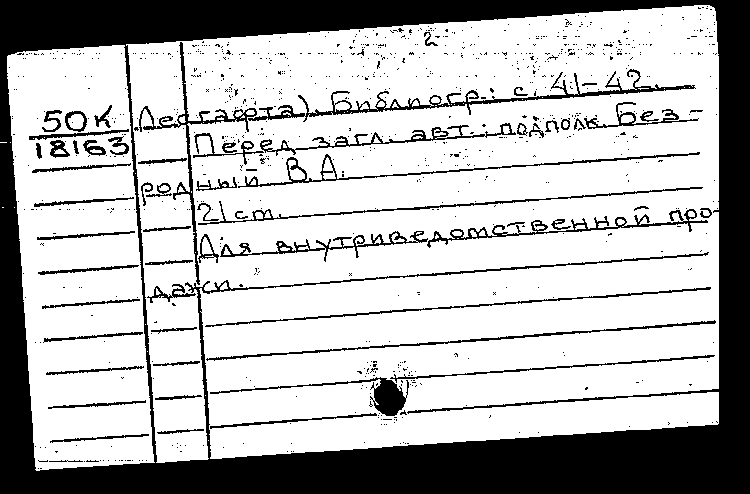 2
50К Лесгафта). Библиогр.: с. 41-42.
18163 Перед загл. авт.: подполк. Без-
родный В.А.
21 cm.
Для внутриведомственной про-
дажи.